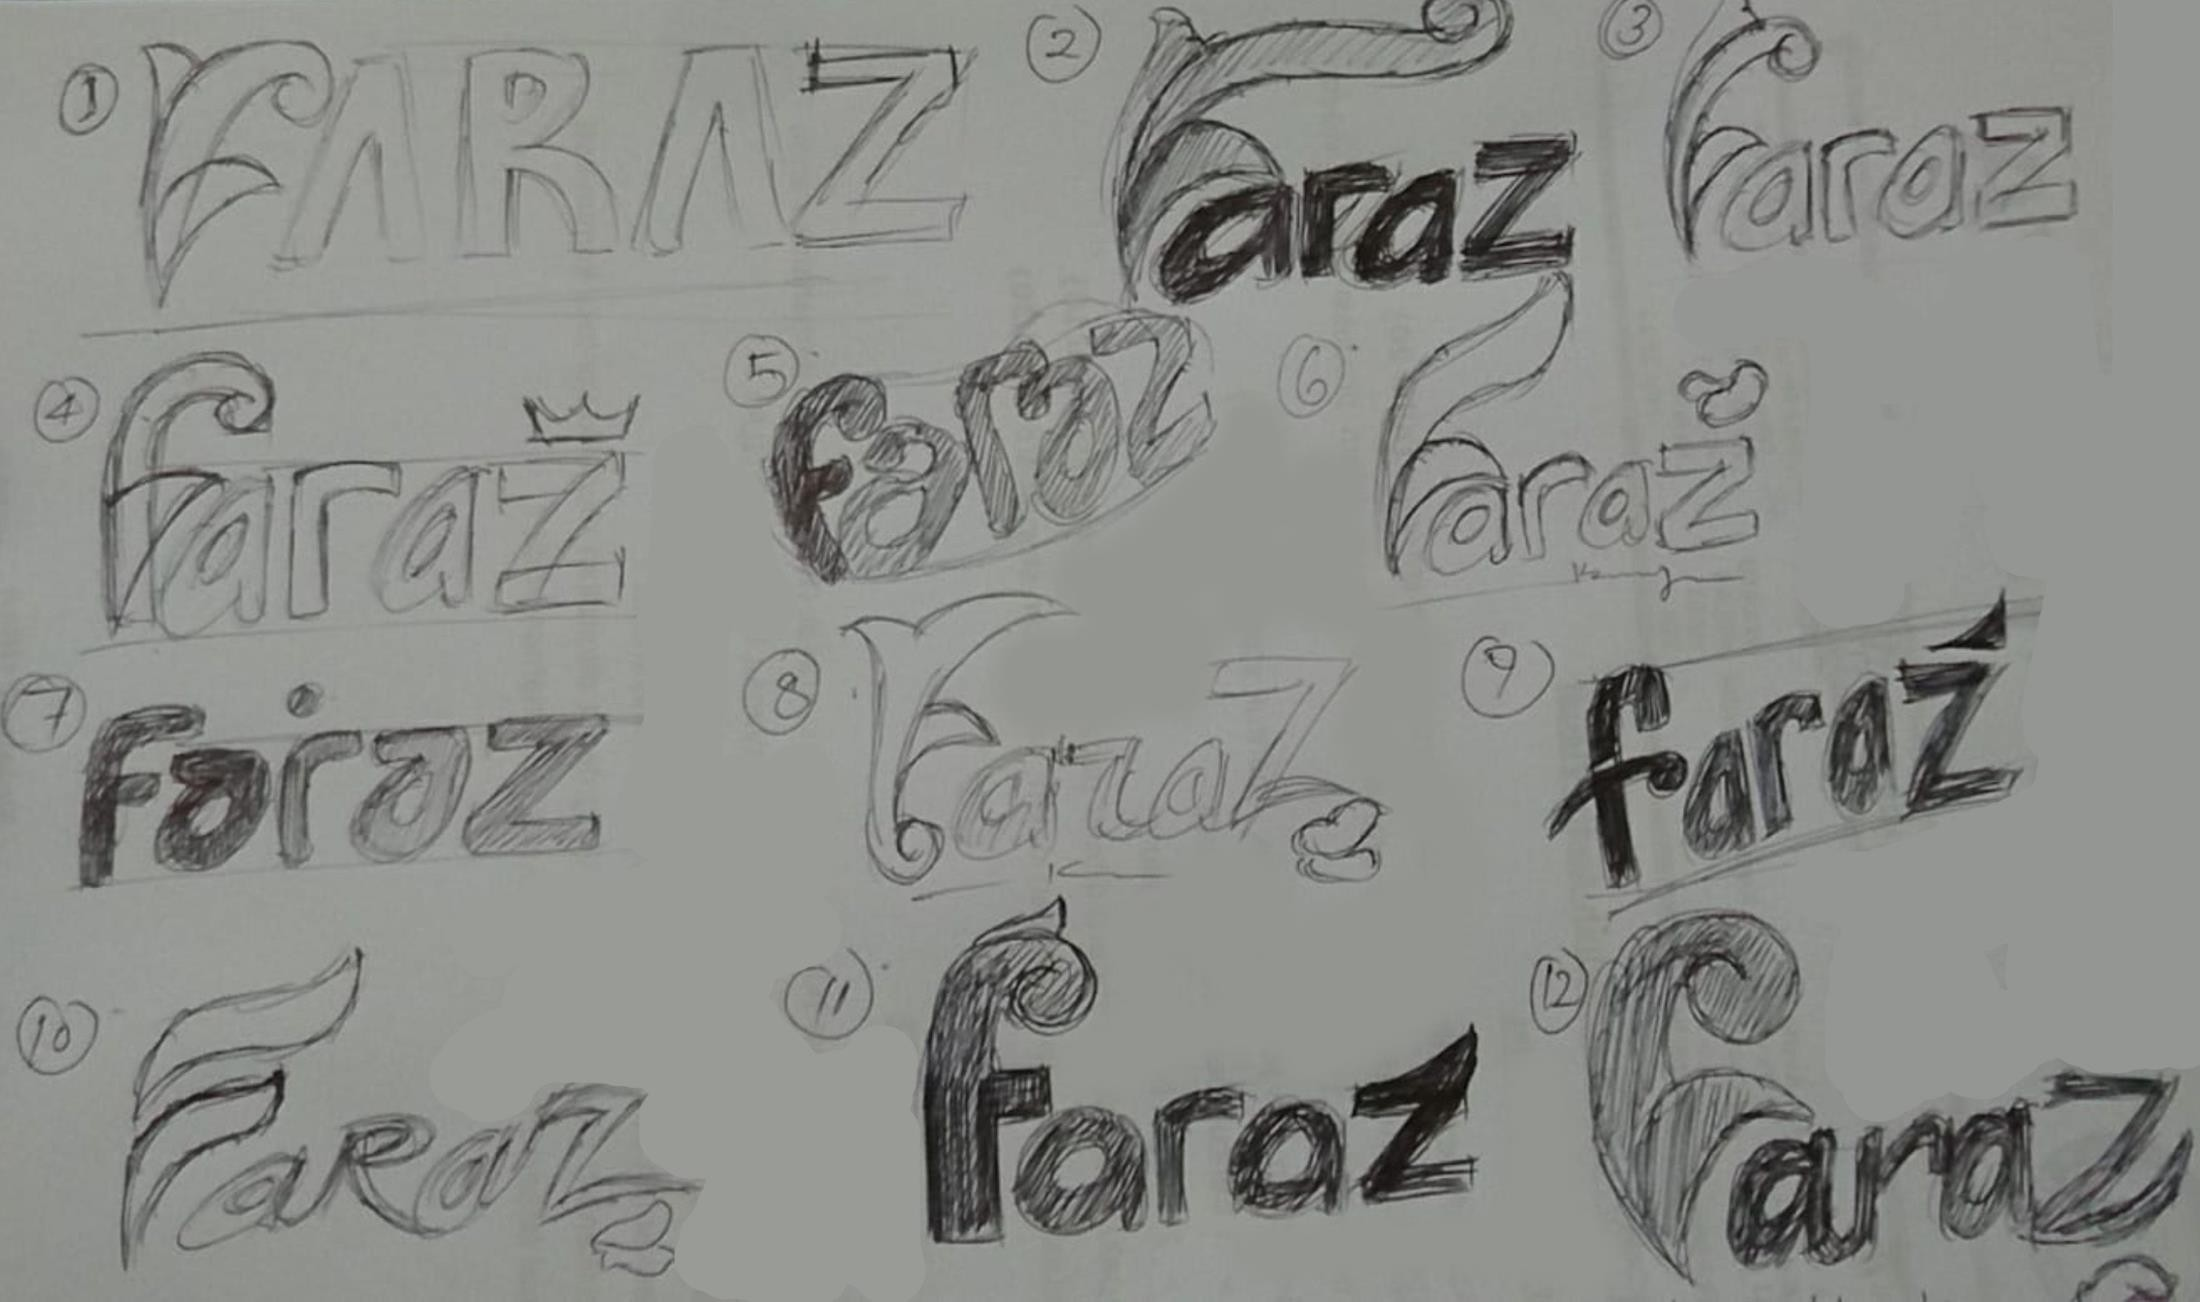 1 FARAZ
2 Faraz
3 Faraz
4 faraz
5 faraz
6 Faraz
7 faraz
8 Faraz
9 faraz
10 FaRaZ
11 faraz
12 Faraz